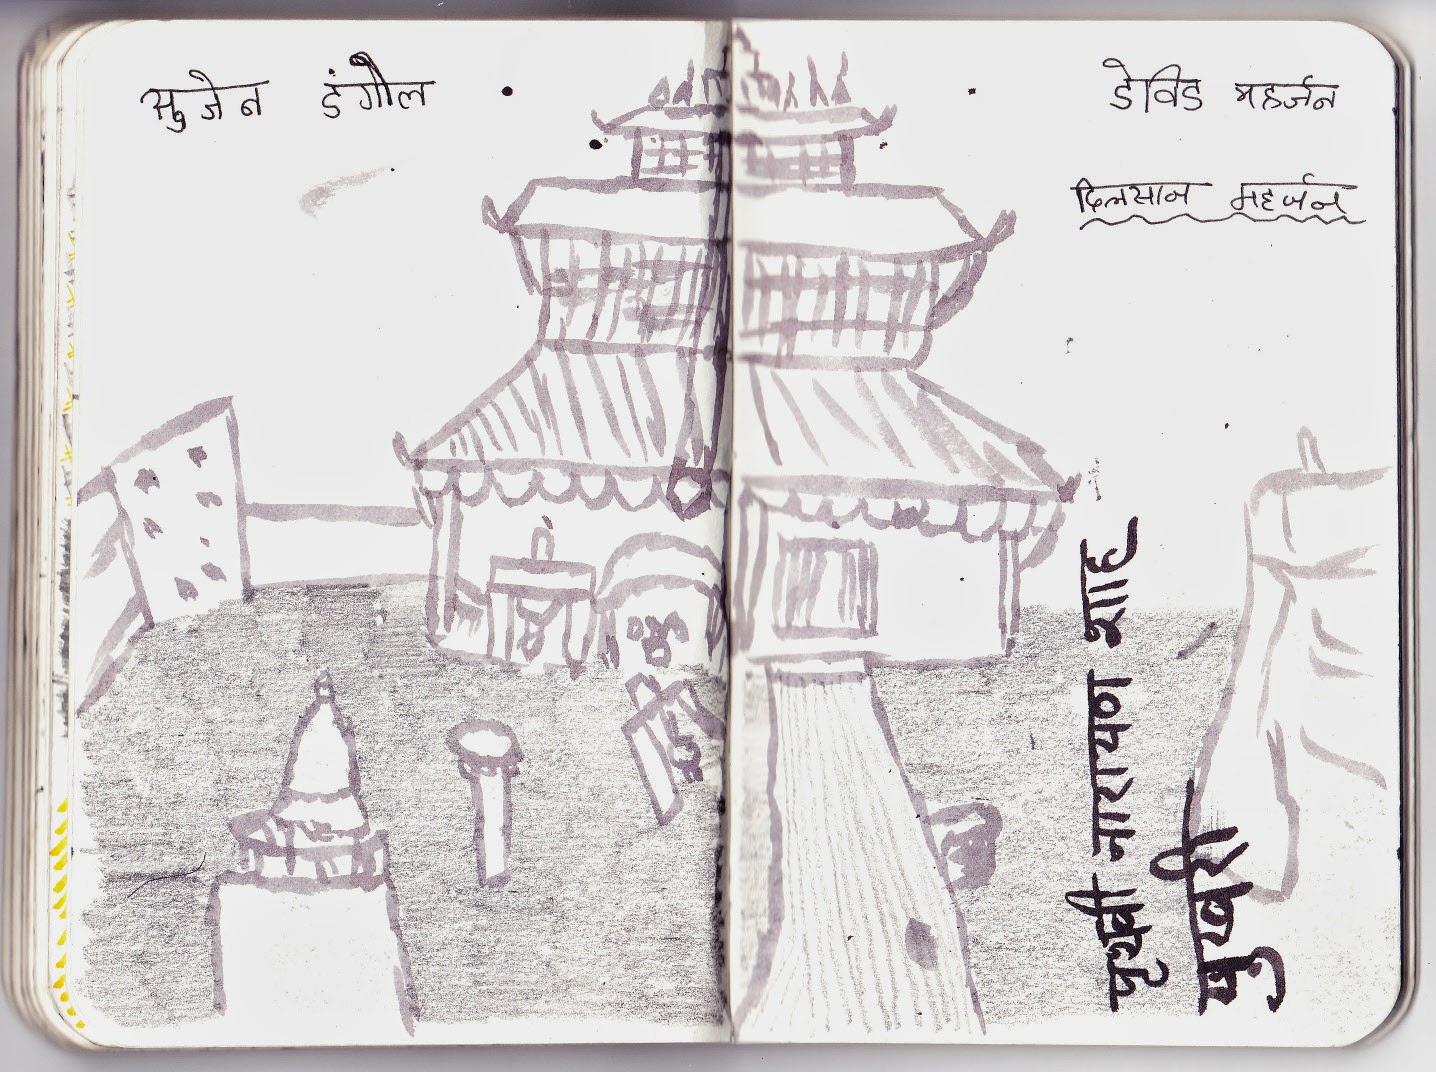 सुजेन डंगौल
डेविड महर्जन
दिलसान महर्जन
पृथ्वी नारायण शाह
पुखरी